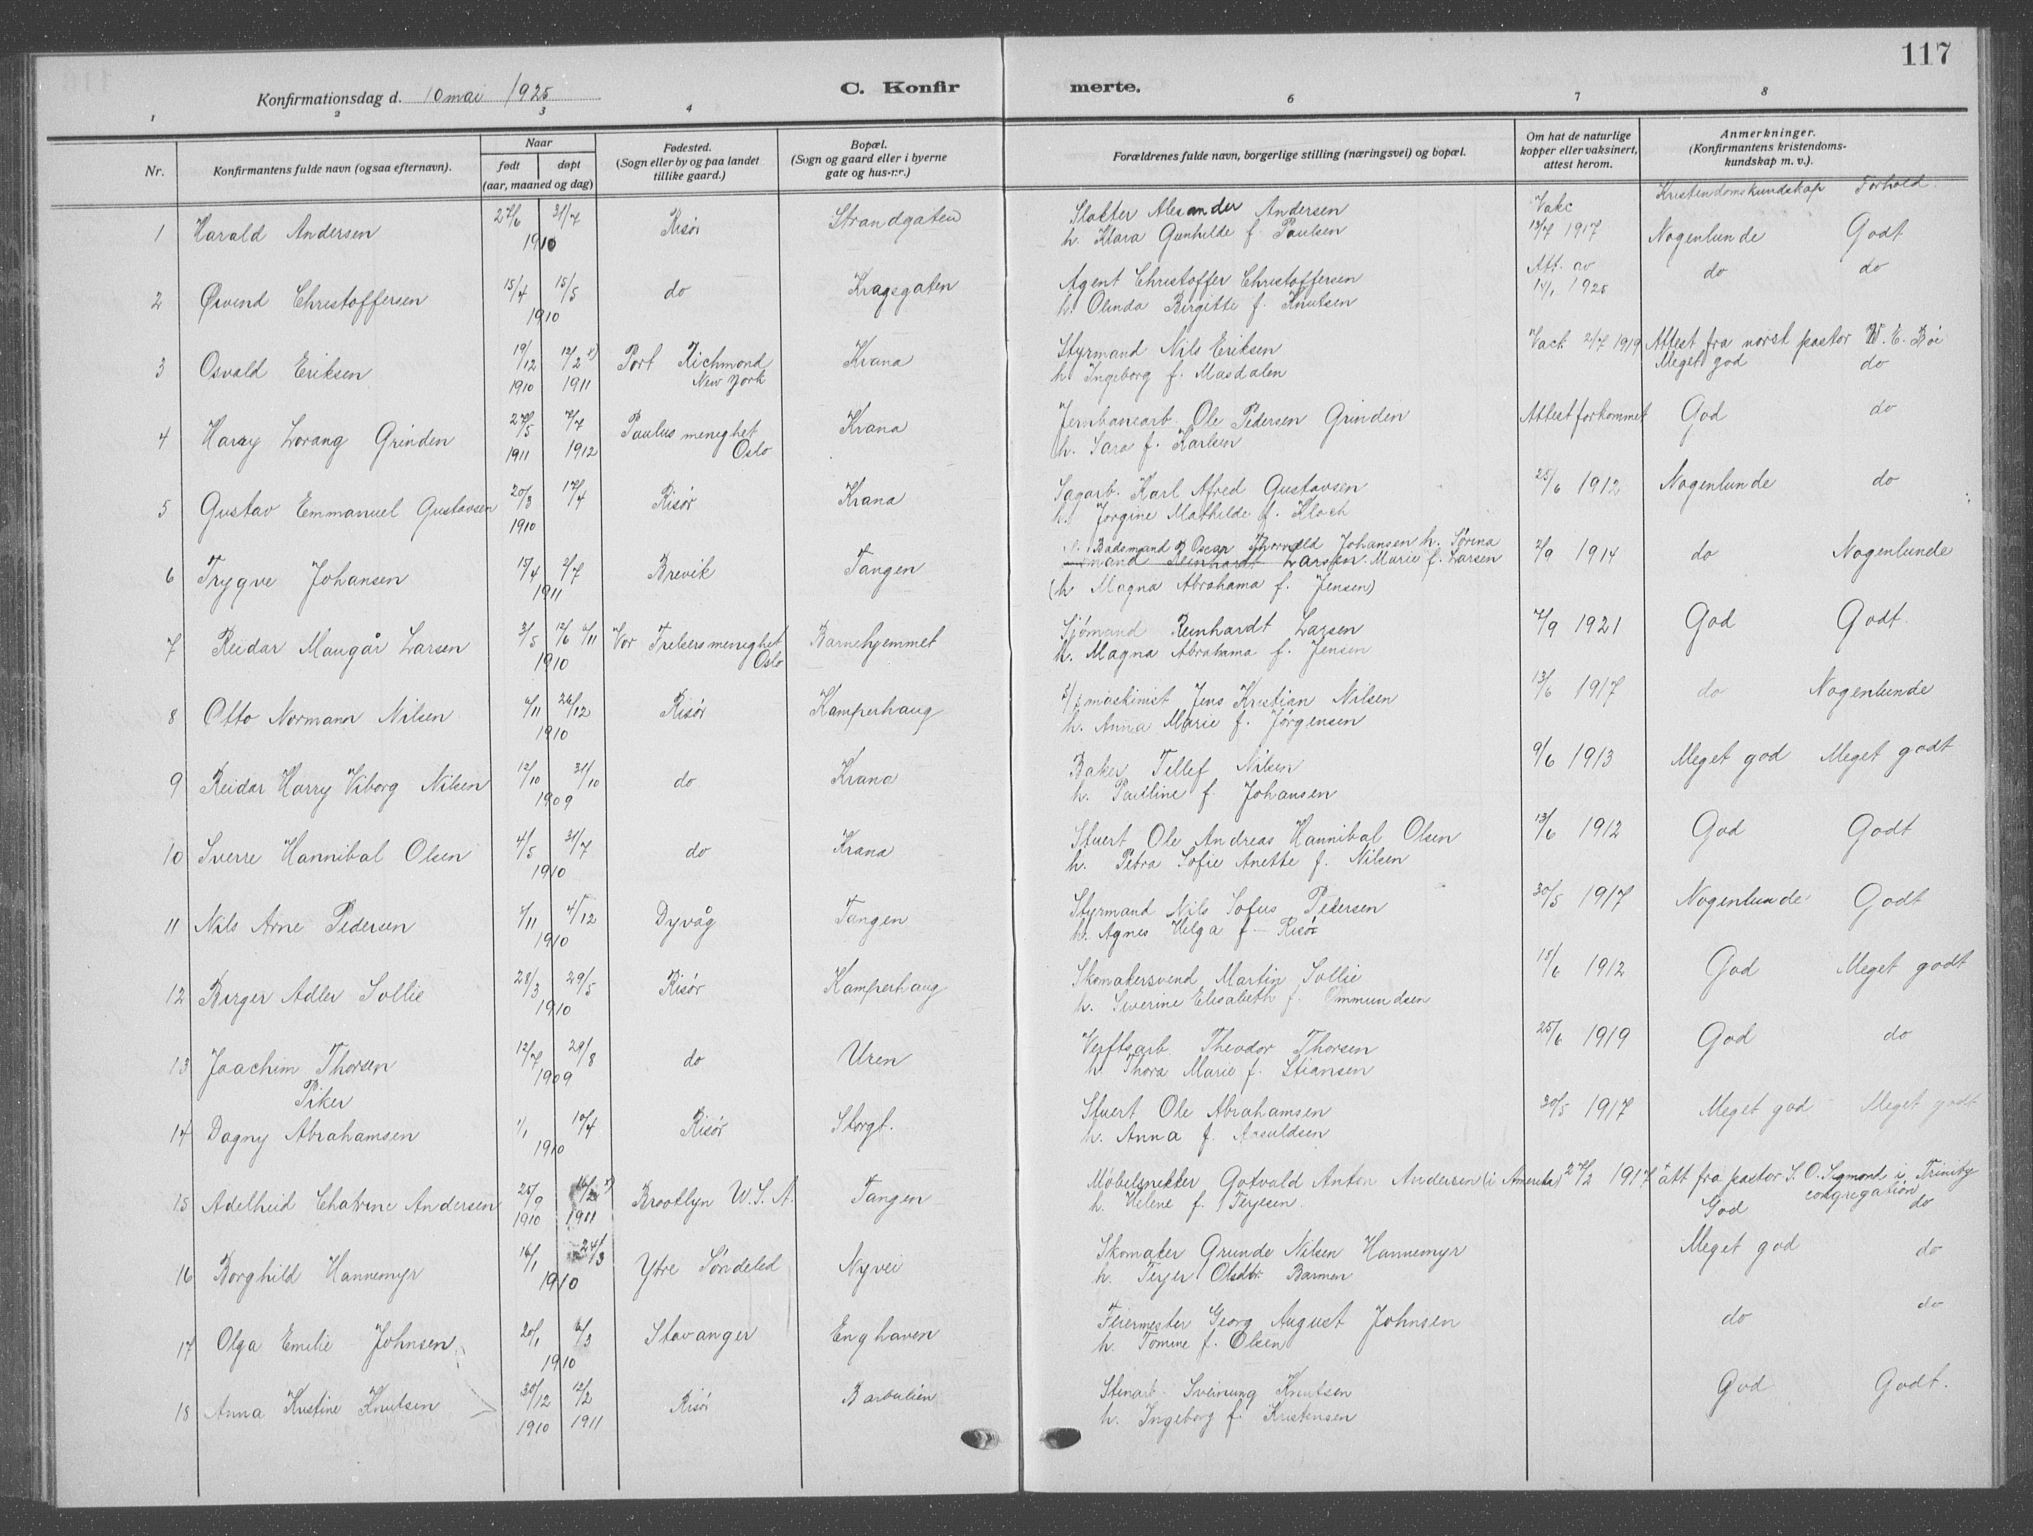 117
Konfirmationsdag d. 10 mai 1925 C. Konfirmerte.
1 2 3 4 6 7 8
Nr. Konfirmantens fulde navn (ogsaa efternavn). Naar født døpt (aar, maaned og dag) Fødested. (Sogn eller by og paa landet tillike gaard.) Bopæl. (Sogn og gaard eller i byerne gate og hus-nr.) Forældrenes fulde navn, borgerlige stilling (næringsvei) og bopæl. Om hat de naturlige kopper eller vaksinert, attest herom. Anmerkninger. (Konfirmantens kristendomskundskap m. v.).
Kristendomskundskap Forhold.
1 Harald Andersen 27/6 31/7 1910 Risør Strandgaten Slakter Alexander Andersen Vakc 13/7 1917 Nogenlunde Godt
h. Klara Gunhilde f. Paulsen
2 Øsvind Christoffersen 15/4 15/5 1910 do Kragsgaten Agent Christoffer Christoffersen Att. av 14/1 1925 do do
h. Olinda Birgitte f. Knutsen
3 Osvald Eriksen 19/12 1910 12/2 1911 Port Richmond New York Krana Styrmand Nils Eriksen Vact 2/7 1919 Attest fra norsk pastor W. E. Bøe
h. Ingeborg f. Masdalen Meget god do
4 Harry Lorang Grinden 27/5 1911 7/7 1912 Paulus menighet Oslo Krana Jernbanearb. Ole Pedersen Grinden Attest forkommet God do
h. Sara f. Karlsen
5 Gustav Emmanuel Gustavsen 20/3 17/4 1910 Risør Krana Sagarb. Karl Afred Gustavsen 25/6 1912 Nogenlunde do
h. Jørgine Mathilde f. Kloch
6 Trygve Johansen 15/4 2/7 1911 Brevik Tangen Baadsmand Oscar Thorvald Johansen h. Sørina 2/9 1914 do Nogenlunde
mand Reinhardt Larsen Marie f. Larsen
(h Magna Abrahama f. Jensen)
7 Reidar Maugår Larsen 3/5 12/6 1910 Vor Frelsers menighet Oslo Barnehjemmet Sjømand Reinhardt Larsen 7/9 1921 God Godt.
h. Magna Abrahama f. Jensen
8 Otto Normann Nilsen 6/11 26/12 1910 Risør Kamperhaug maskinist Jens Kristian Nilsen 13/6 1917 do Nogenlunde
h. Anna Marie f. Jørgensen
9 Reidar Harry Viborg Nilsen 12/10 31/10 1909 do Krana Baker Tellef Nilsen 9/6 1913 Meget god Meget godt
h. Pauline f. Johansen
10 Sverre Hannibal Olsen 4/5 31/7 1910 do Krana Stuert Ole Andreas Hannibal Olsen 13/6 1912 God Godt
h. Petra Sofie Anette f. Nilsen
11 Nils Arne Pedersen 4/12 1910 Dyvåg Tangen Styrmand Nils Sofus Pedersen 30/5 1917 Nogenlunde Godt
h. Agnes Helga f - Risør
12 Birger Adler Sollie 28/3 29/5 1910 Risør Kamperhaug Skomakersvend Martin Sollie 15/6 1912 God Meget godt
h. Severine Elisabeth f. Ommundsen
13 Joachim Thorsen 12/7 29/8 1909 do Uren Verftsarb. Theodor Thorsen 25/6 1919 God do
h. Thora Marie f. Stiansen
Piker
14 Dagny Abrahamsen 1/1 10/4 1910 Risør Storgt. Stuert Ole Abrahamsen 20/5 1917 Meget god Meget godt
h. Anna f. Aanldsen
15 Adelheid Chatrine Andersen 25/9 1910 1911 Brooklyn U.S.A Tangen Møbelsnekker Gotvald Anton Andersen (i Amerika) 27/2 1917 att fra pastor S. O. Sigmond i Trinity congregation
h. Helene f. Terjesen. God do
16 Borghild Hannemyr 16/1 24/3 1910 Ytre Søndeled Nyvei Skomaker Grunde Nilsen Hannemyr Meget god do
h. Terjer Olsdtr. Barmen
17 Olga Emilie Johnsen 20/1 6/3 1910 Stavanger Enghaven Feiermester Georg August Johnsen do do
h. Tomine f. Olsen
18 Anna Kristine Knutsen 30/12 1910 12/2 1911 Risør Barbulien Stenarb. Sveinung Knutsen God Godt.
h. Ingeborg f. Kristensen